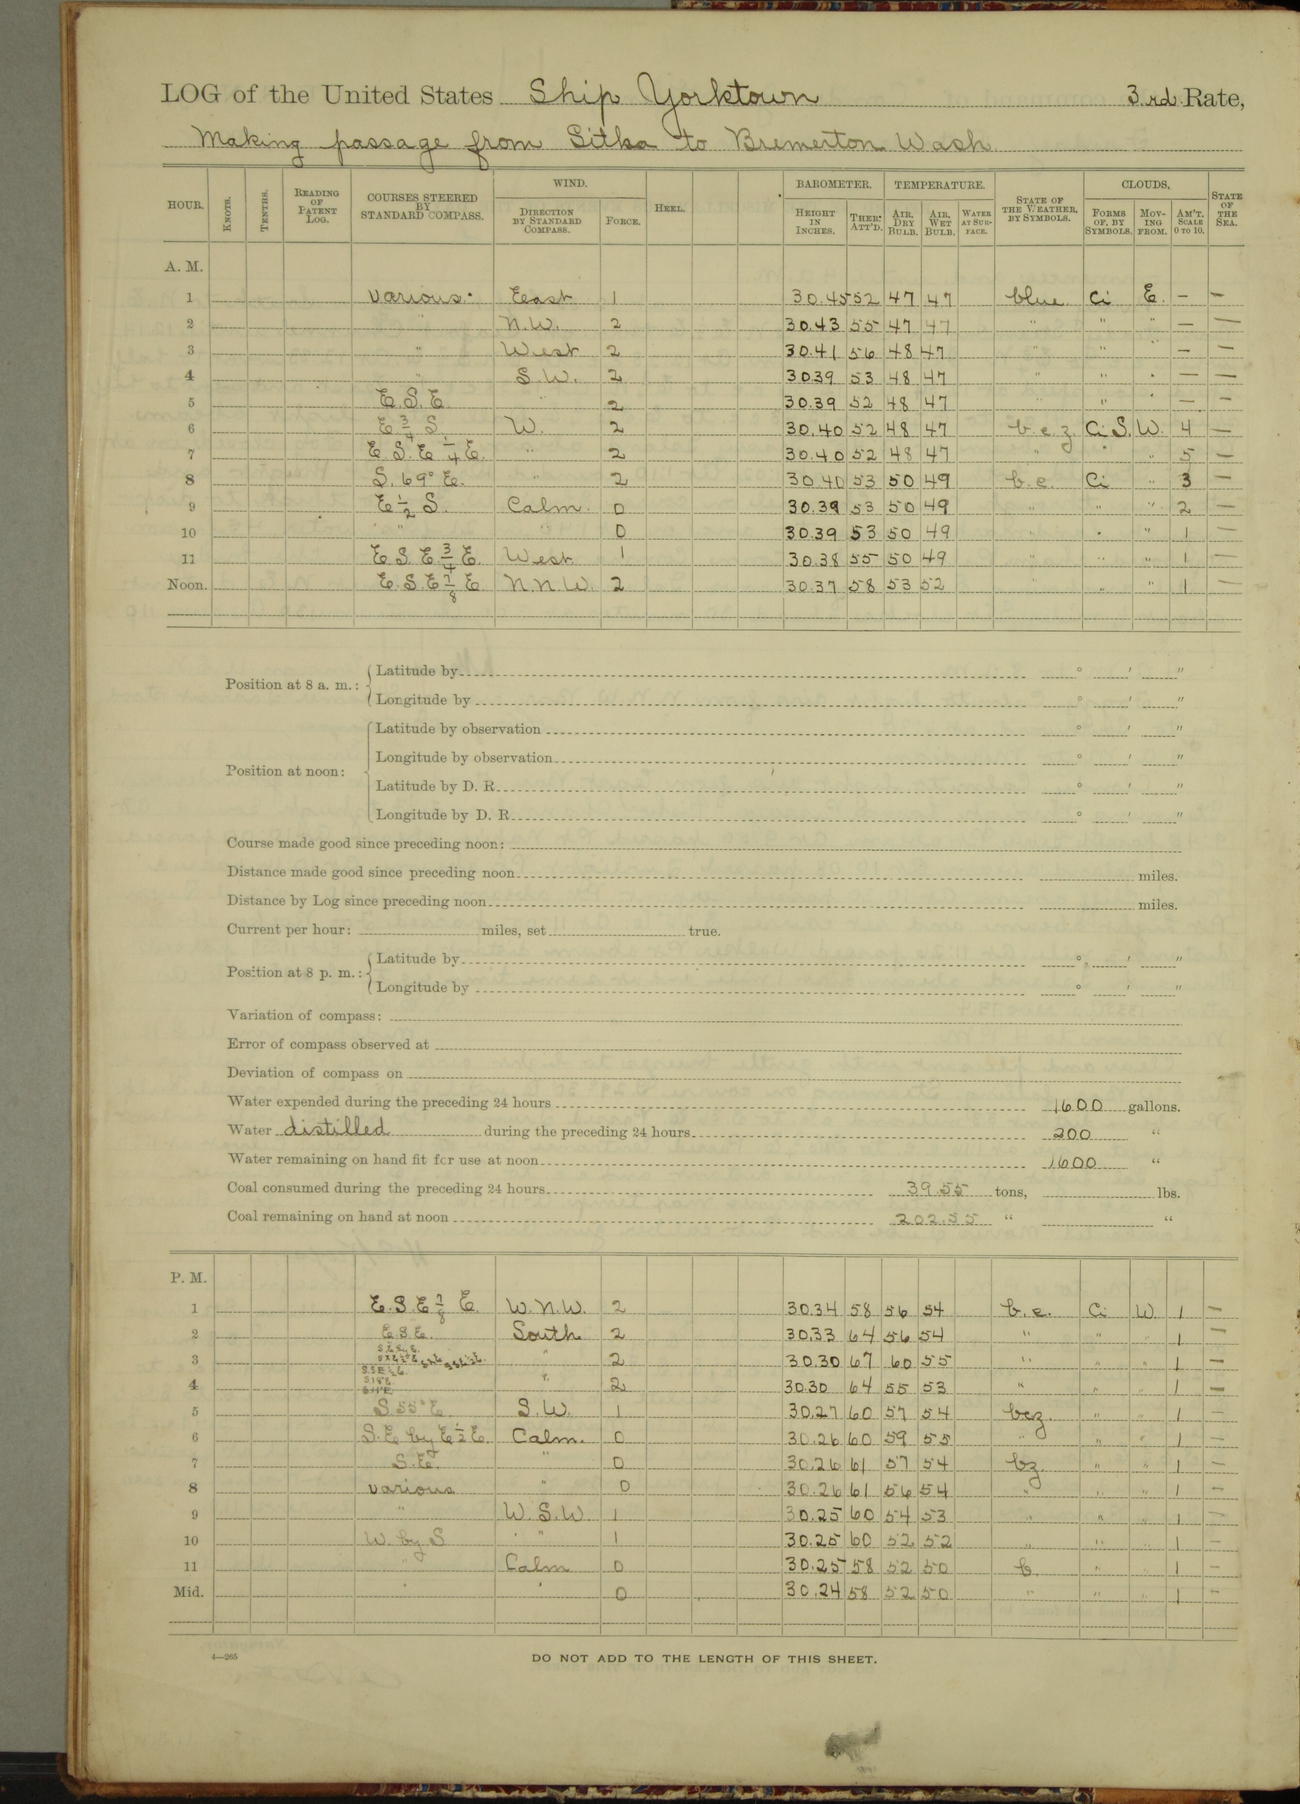 LOG of the United States Ship Yorktown 3rd Rate,
Making passage from Sitka to Bremerton Wash.
HOUR. KNOTS. TENTHS. READING OF PATENT LOG. COURSES STEERED BY STANDARD COMPASS. WIND. DIRECTION BY STANDARD COMPASS. FORCE. HEEL. BAROMETER. HEIGHT IN INCHES. THER: ATT'D. TEMPERATURE. AIR, DRY BULB. AIR, WET BULB. WATER AT SURFACE. STATE OF THE WEATHER, BY SYMBOLS. CLOUDS. FORMS OF, BY SYMBOLS. MOVING FROM. AM'T. SCALE 0 TO 10. STATE OF THE SEA.
A. M.
1 various. East 1 30.45 52 47 47 blue Ci E. — —
2 " N.W. 2 30.43 55 47 47 " " " — —
3 " West 2 30.41 56 48 47 " " " — —
4 " S.W. 2 30.39 53 48 47 " " " — —
5 E.S.E " 2 30.39 52 48 47 " " — —
6 E 3/4 S W. 2 30.40 52 48 47 b.c.z. Ci S. W. 4 —
7 E.S.E 1/4 E. " 2 30.40 52 48 47 " " 5 —
8 S. 69° E. " 2 30.40 53 50 49 b.c. Ci " 3 —
9 E 1/2 S. Calm. 0 30.39 53 50 49 " " " 2 —
10 " " 0 30.39 53 50 49 " " " 1 —
11 E S E 3/4 E. West 1 30.38 55 50 49 " " " 1 —
Noon. E.S.E 7/8 E N.N.W. 2 30.37 58 53 52 " " " 1 —
Position at 8 a. m.: Latitude by ° ' "
Longitude by ° ' "
Position at noon: Latitude by observation ° ' "
Longitude by observation ° ' "
Latitude by D. R. ° ' "
Longitude by D. R. ° ' "
Course made good since preceding noon:
Distance made good since preceding noon miles.
Distance by Log since preceding noon miles.
Current per hour: miles, set true.
Position at 8 p. m.: Latitude by ° ' "
Longitude by ° ' "
Variation of compass:
Error of compass observed at
Deviation of compass on
Water expended during the preceding 24 hours 1600 gallons.
Water distilled during the preceding 24 hours 200 "
Water remaining on hand fit for use at noon 1600 "
Coal consumed during the preceding 24 hours 39.55 tons, lbs.
Coal remaining on hand at noon 202.55 " "
P. M.
1 E.S.E 7/8 E. W.N.W. 2 30.34 58 56 54 b.c. Ci W. 1 —
2 E.S.E. South 2 30.33 64 56 54 " " " 1 —
3 " 2 30.30 67 60 55 " " " 1 —
4 " 2 30.30 64 55 53 " " " 1 —
5 S.55° E. S.W. 1 30.27 60 57 54 bcz. " " 1 —
6 S.E by E 1/2 E. Calm. 0 30.26 60 59 55 " " " 1 —
7 S.E. " 0 30.26 61 57 54 bz. " " 1 —
8 various " 0 30.26 61 56 54 " " " 1 —
9 " W.S.W. 1 30.25 60 54 53 " " " 1 —
10 W. by S " 1 30.25 60 52 52 " " " 1 —
11 " Calm 0 30.25 58 52 50 b. " " 1 —
Mid. " " 0 30.24 58 52 50 " " " 1 —
4—265
DO NOT ADD TO THE LENGTH OF THIS SHEET.